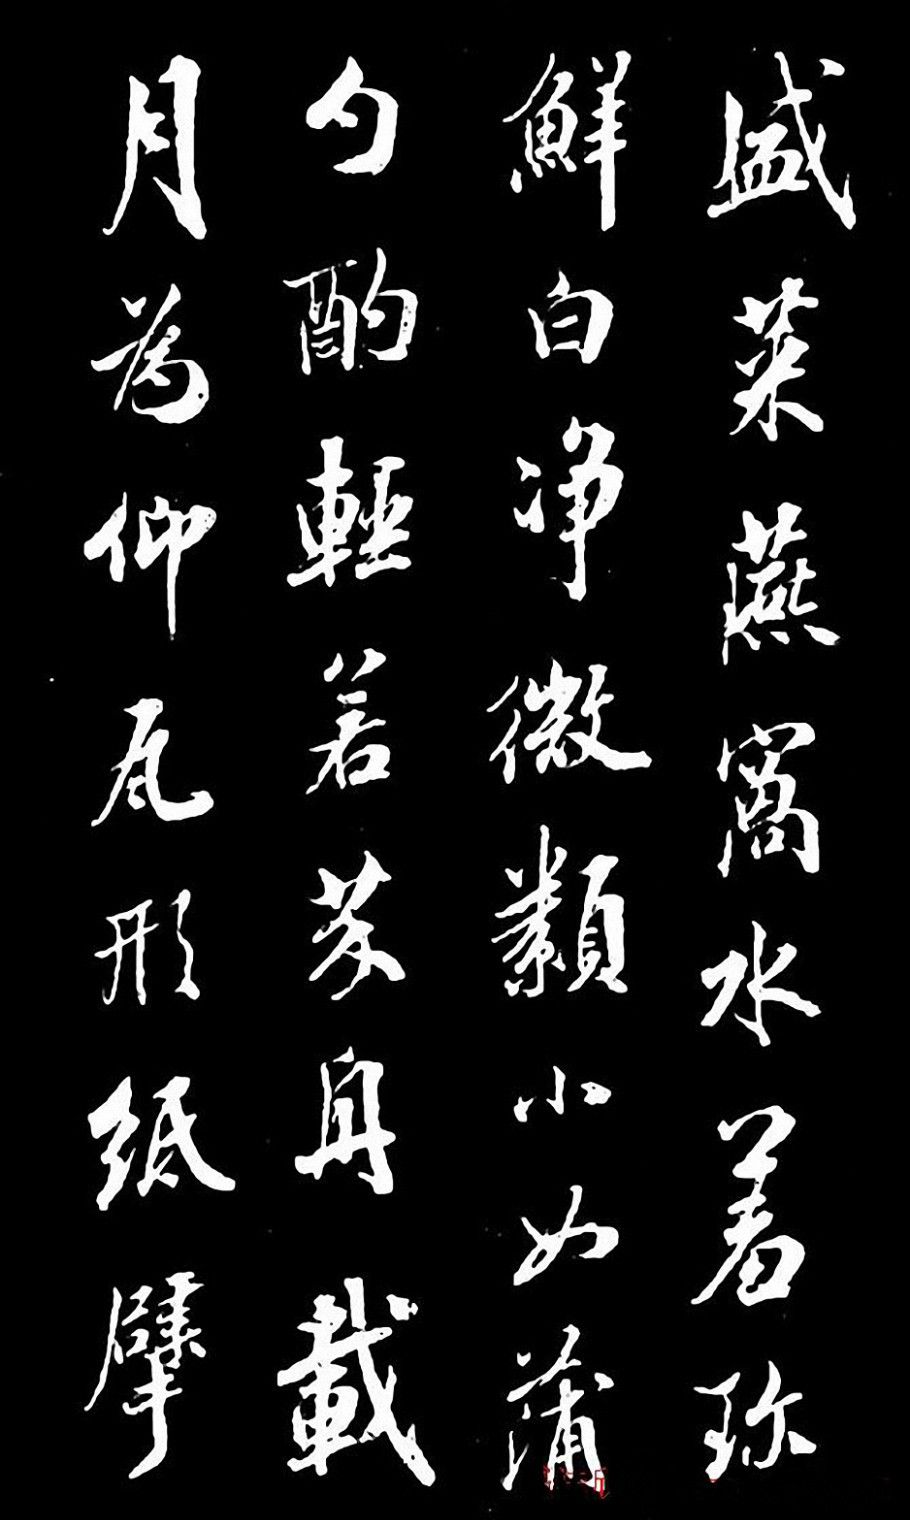 盛菜燕窩水著珍
鮮白净微纇小如蒲
勺酌輕若芥舟載
月為仰瓦形紙擘